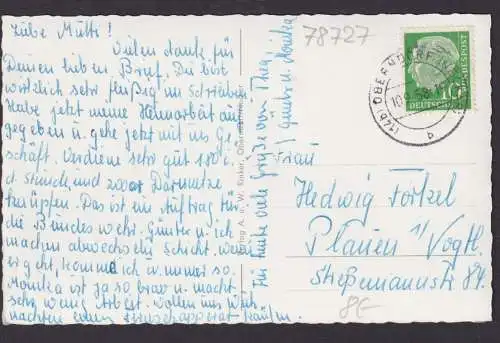 Liebe Mutti!
Vielen Dank für
Deinen lieben Brief. Du bist
wirklich sehr fleißig im Schreiben
Habe jetzt meine Heimarbeit auf
gegeben u. gehe jetzt mit ins Ge
schäft. Verdiene sehr gut 180
d. Stunde und
knüpfen. Das ist ein Auftrag für
die Bundeswehr. Günter u. ich
machen abwechselnd Schicht. wenn
er geht, komme ich u. immer so.
Monika ist ja so brav u. macht
sehr wenig Arbeit. Wollen uns Weih
nachten einen kaufen.
Für heute viele Grüße von Thea,
Günter u. Monika
78727
(14b) OBERNDORF
10
58
b
DEUTSCHE BUNDESPOST
10
Verlag A. u. W. Oberndorf
Frau
Hedwig Förkel
Plauen i/ Vogtl.
Streßemannstr 84.
8E